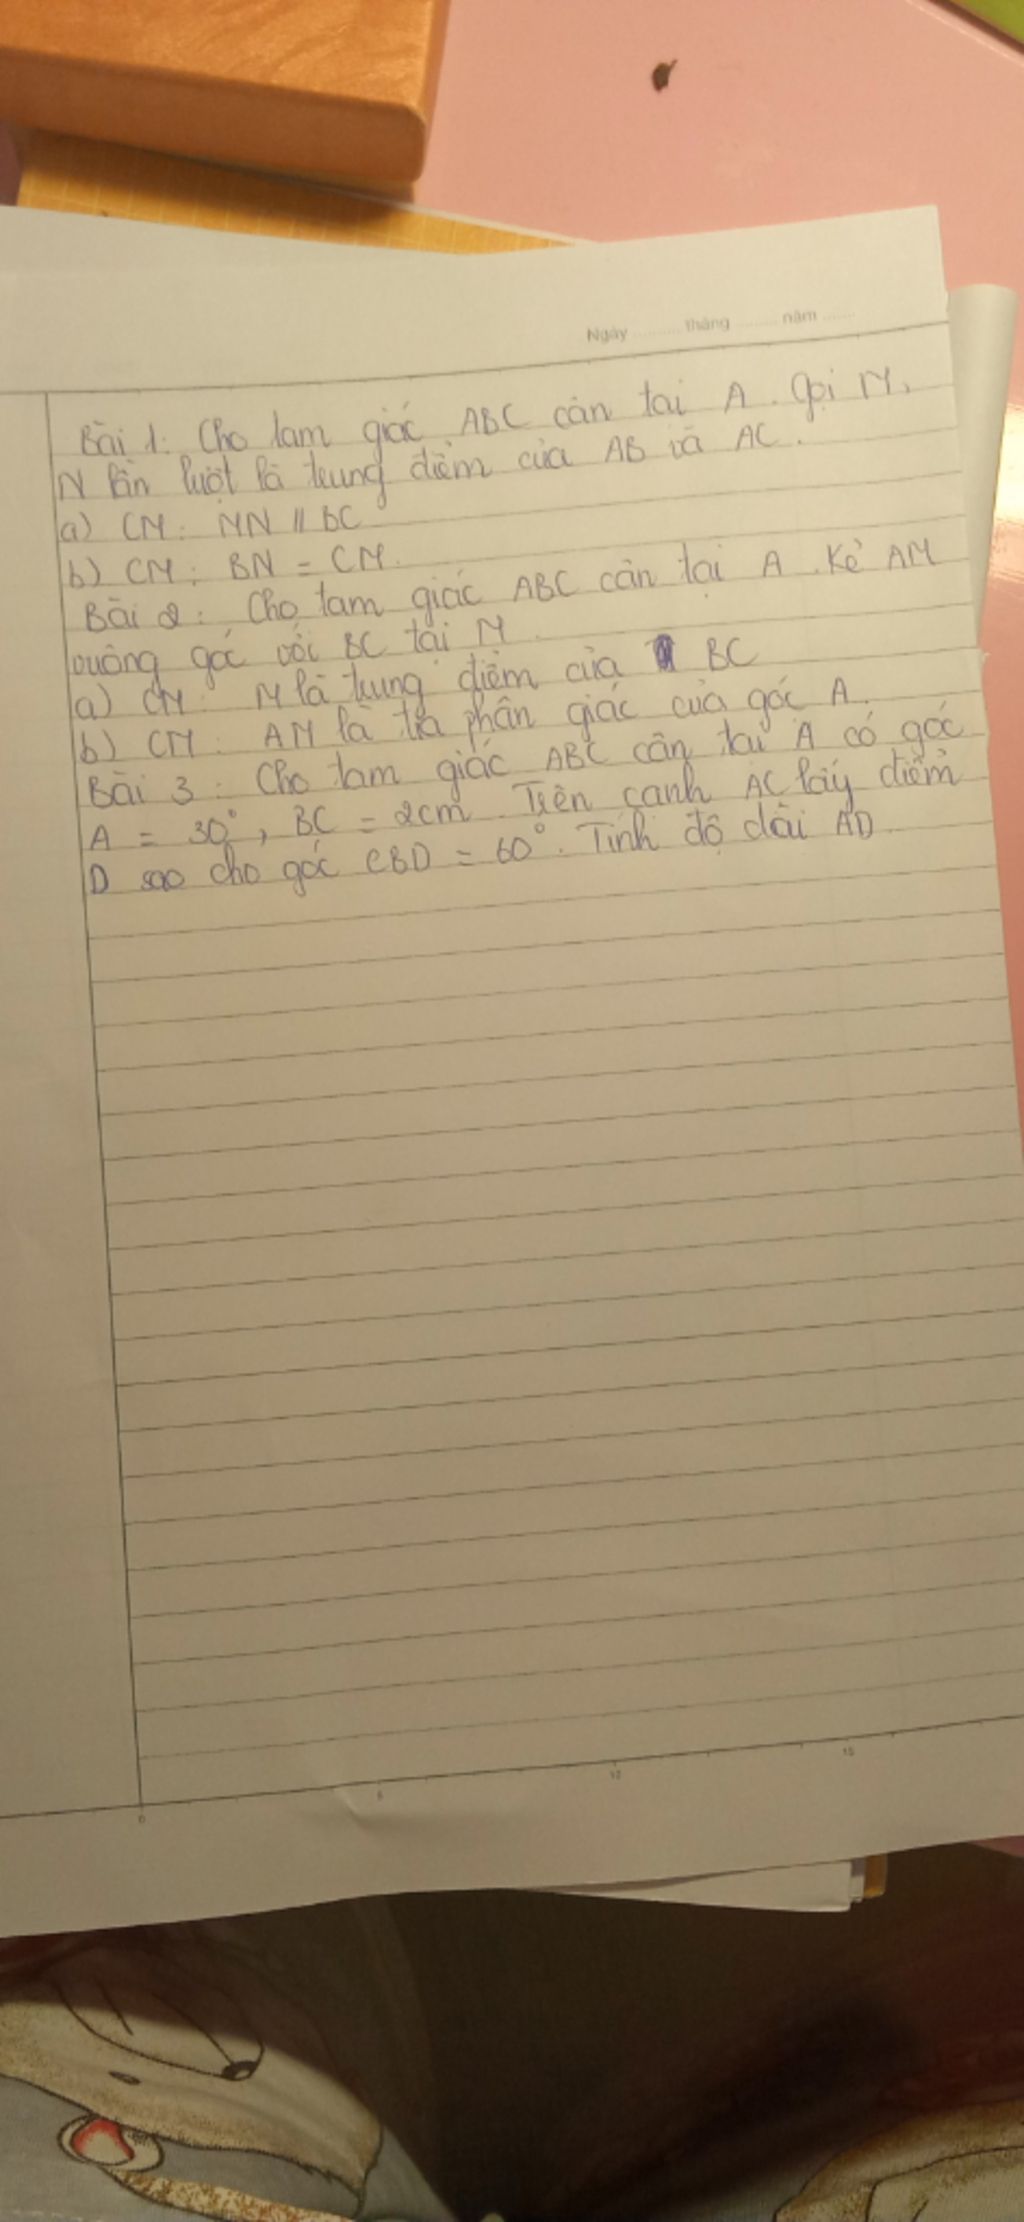 Ngày .......... tháng ........ năm ......
Bài 1: Cho tam giác ABC cân tại A. Gọi M,
N lần lượt là trung điểm của AB và AC.
a) CM: MN // BC
b) CM: BN = CM.
Bài 2: Cho tam giác ABC cân tại A. Kẻ AM
vuông góc với BC tại M.
a) CM: M là trung điểm của BC
b) CM: AM là tia phân giác của góc A.
Bài 3: Cho tam giác ABC cân tại A có góc
A = 30°, BC = 2cm. Trên cạnh AC lấy điểm
D sao cho góc CBD = 60°. Tính độ dài AD
0 5 10 15